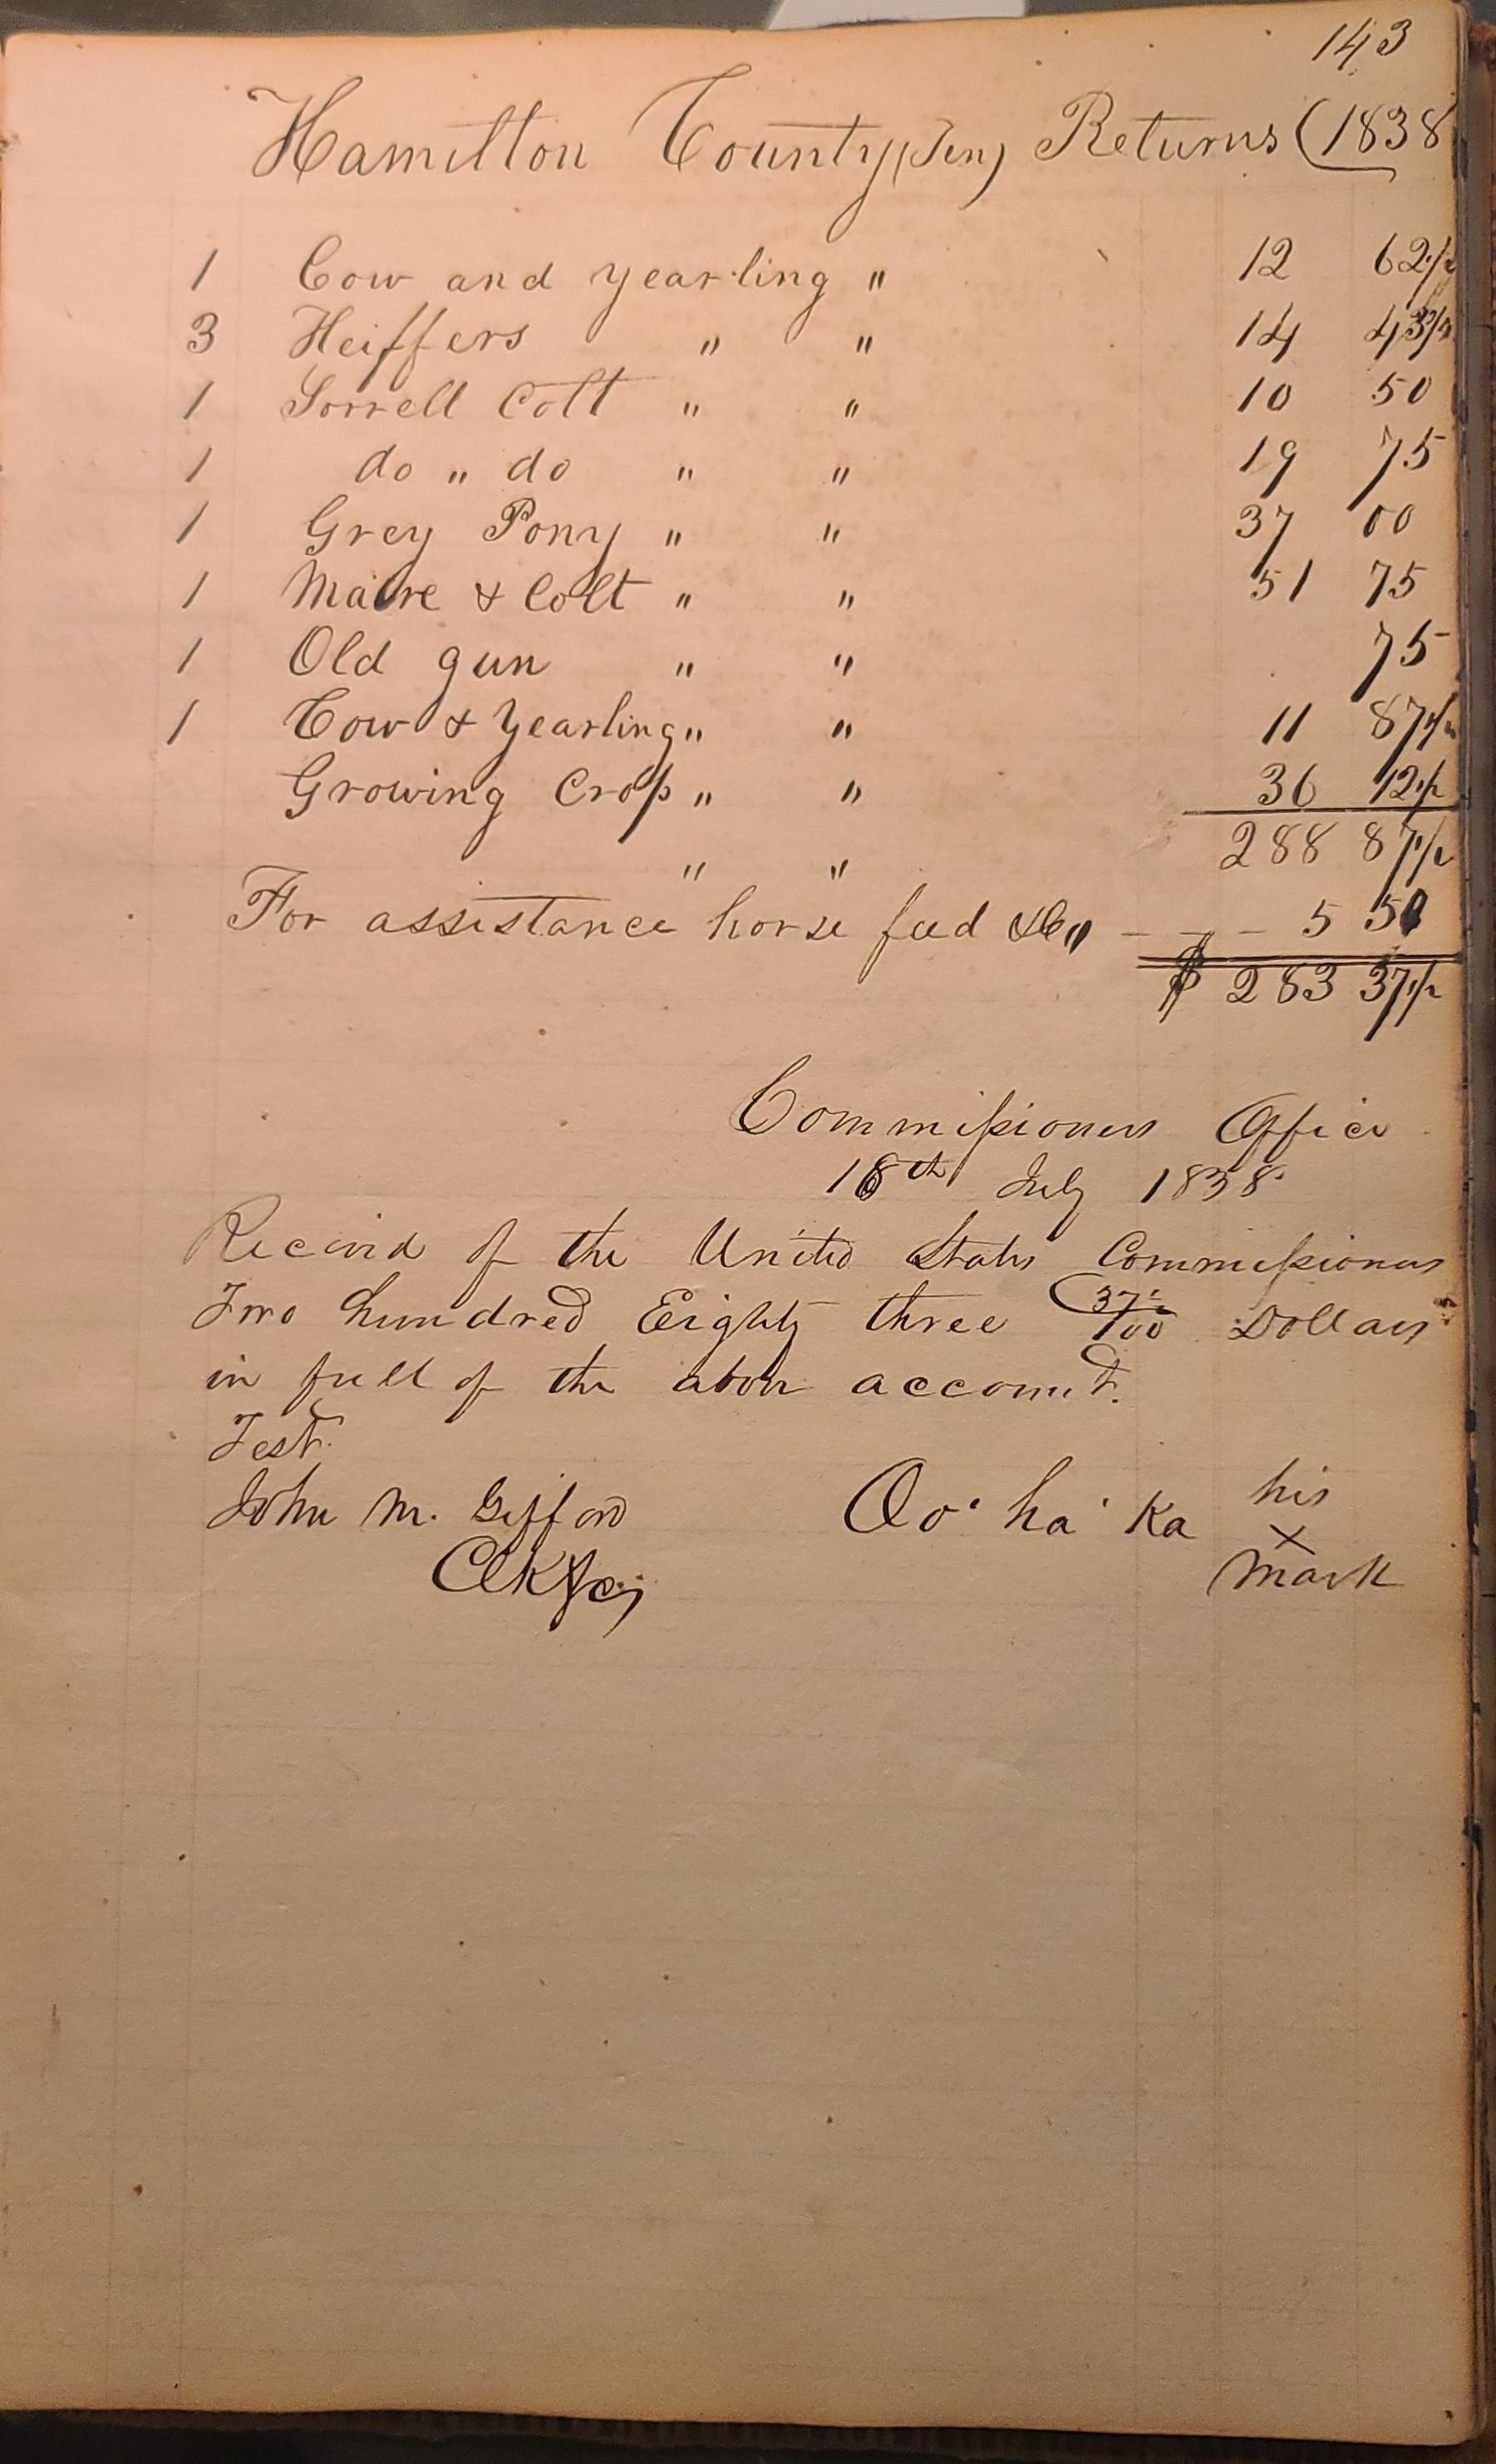 143
Hamilton County (Ten) Returns (1838
1 Cow and yearling " 12 62 1/2
3 Heiffers " " 14 43 3/4
1 Sorrell Colt " " 10 50
1 do " do " " 19 75
1 Grey Pony " " 37 00
1 Maire & Colt " " 51 75
1 Old gun " " 75
1 Cow & Yearling " " 11 87 1/2
Growing Crop " " 36 12 1/2
" " 288 87 1/2
For assistance horse feed &c " - - - 5 50
$ 283 37 1/2
Commissioners Office
18th July 1838
Received of the United States Commissioners
Two hundred Eighty three 37 1/2/100 Dollars
in full of the above account.
Test.
John M. Gifford his
Oo' ha' ka X
Clk &c; mark